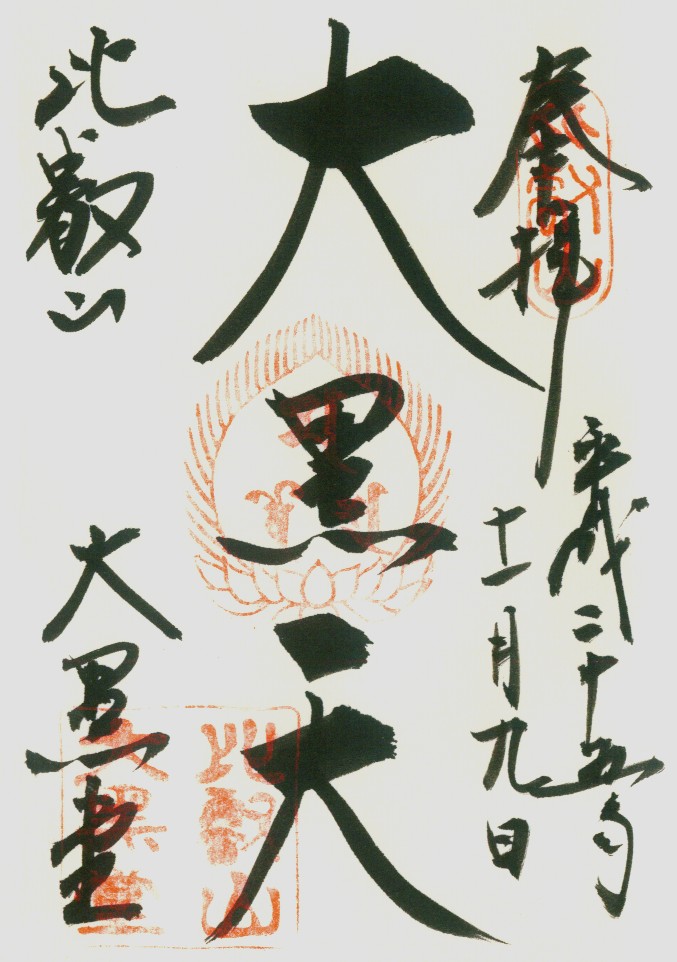 奉拝
平成二十五年
十一月九日
大黒天
比叡山
大黒堂
比叡山
大黒堂